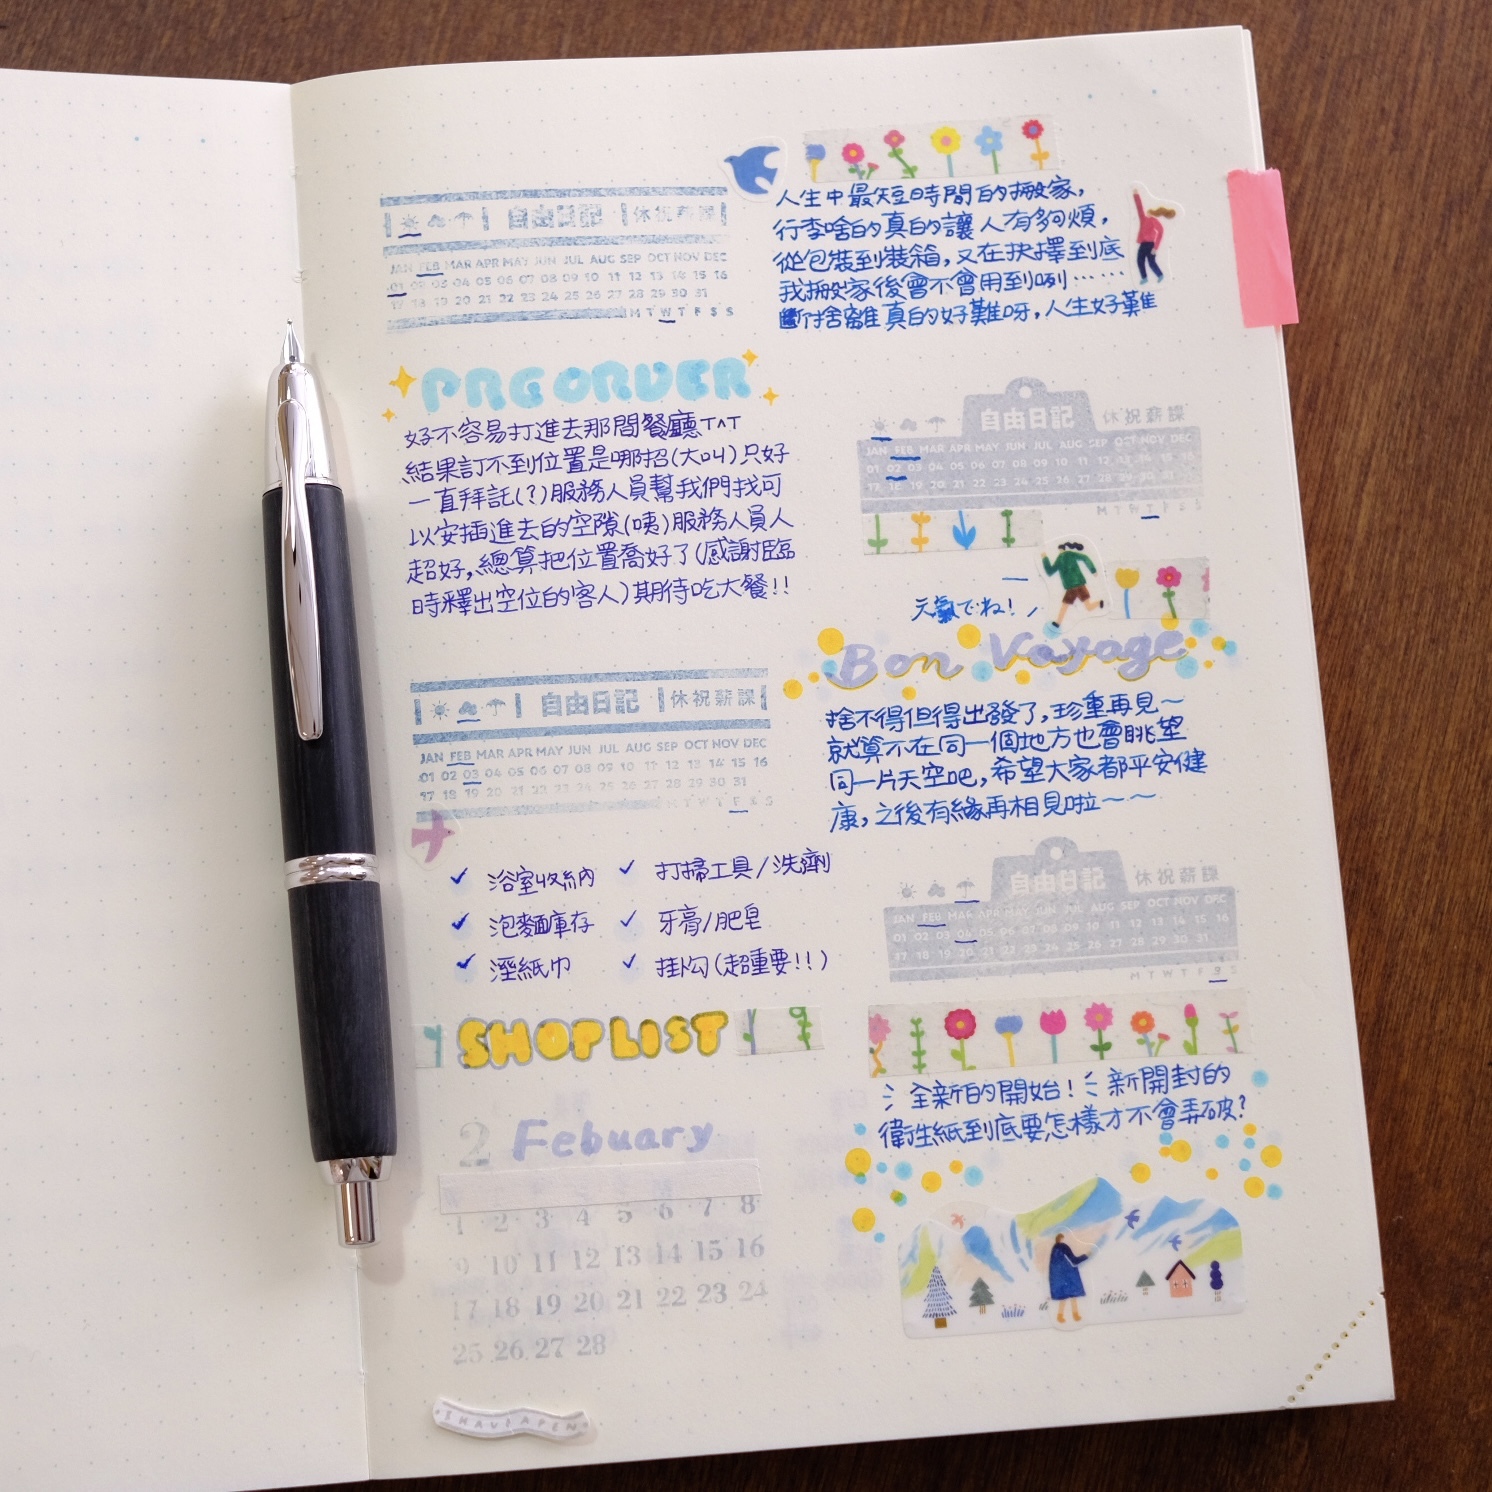 自由日記 休祝薪課
JAN FEB MAR APR MAY JUN JUL AUG SEP OCT NOV DEC
01 02 03 04 05 06 07 08 09 10 11 12 13 14 15 16
17 18 19 20 21 22 23 24 25 26 27 28 29 30 31
M T W T F S S
PREORDER
好不容易打進去那間餐廳T^T
結果訂不到位置是哪招(大叫)只好
一直拜託(?)服務人員幫我們找可
以安插進去的空隙(咦)服務人員人
超好,總算把位置喬好了(感謝臨
時釋出空位的客人)期待吃大餐!!
自由日記 休祝薪課
JAN FEB MAR APR MAY JUN JUL AUG SEP OCT NOV DEC
01 02 03 04 05 06 07 08 09 10 11 12 13 14 15 16
17 18 19 20 21 22 23 24 25 26 27 28 29 30 31
M T W T F S S
✓ 浴室收納 ✓ 打掃工具/洗劑
✓ 泡麵庫存 ✓ 牙膏/肥皂
✓ 溼紙巾 ✓ 掛勾(超重要!!)
SHOPLIST
2 Febuary
1 2 3 4 5 6 7 8
9 10 11 12 13 14 15 16
17 18 19 20 21 22 23 24
25 26 27 28
人生中最短時間的搬家,
行李啥的真的讓人有夠煩,
從包裝到裝箱,又在抉擇到底
我搬家後會不會用到咧……
斷付捨離真的好難呀,人生好難
自由日記 休祝薪課
JAN FEB MAR APR MAY JUN JUL AUG SEP OCT NOV DEC
01 02 03 04 05 06 07 08 09 10 11 12 13 14 15 16
17 18 19 20 21 22 23 24 25 26 27 28 29 30 31
M T W T F S S
元氣でね!
Bon Voyage
捨不得但得出發了,珍重再見~
就算不在同一個地方也會眺望
同一片天空吧,希望大家都平安健
康,之後有緣再相見啦~~
自由日記 休祝薪課
JAN FEB MAR APR MAY JUN JUL AUG SEP OCT NOV DEC
01 02 03 04 05 06 07 08 09 10 11 12 13 14 15 16
17 18 19 20 21 22 23 24 25 26 27 28 29 30 31
M T W T F S S
全新的開始! 新開封的
衛生紙到底要怎樣才不會弄破?